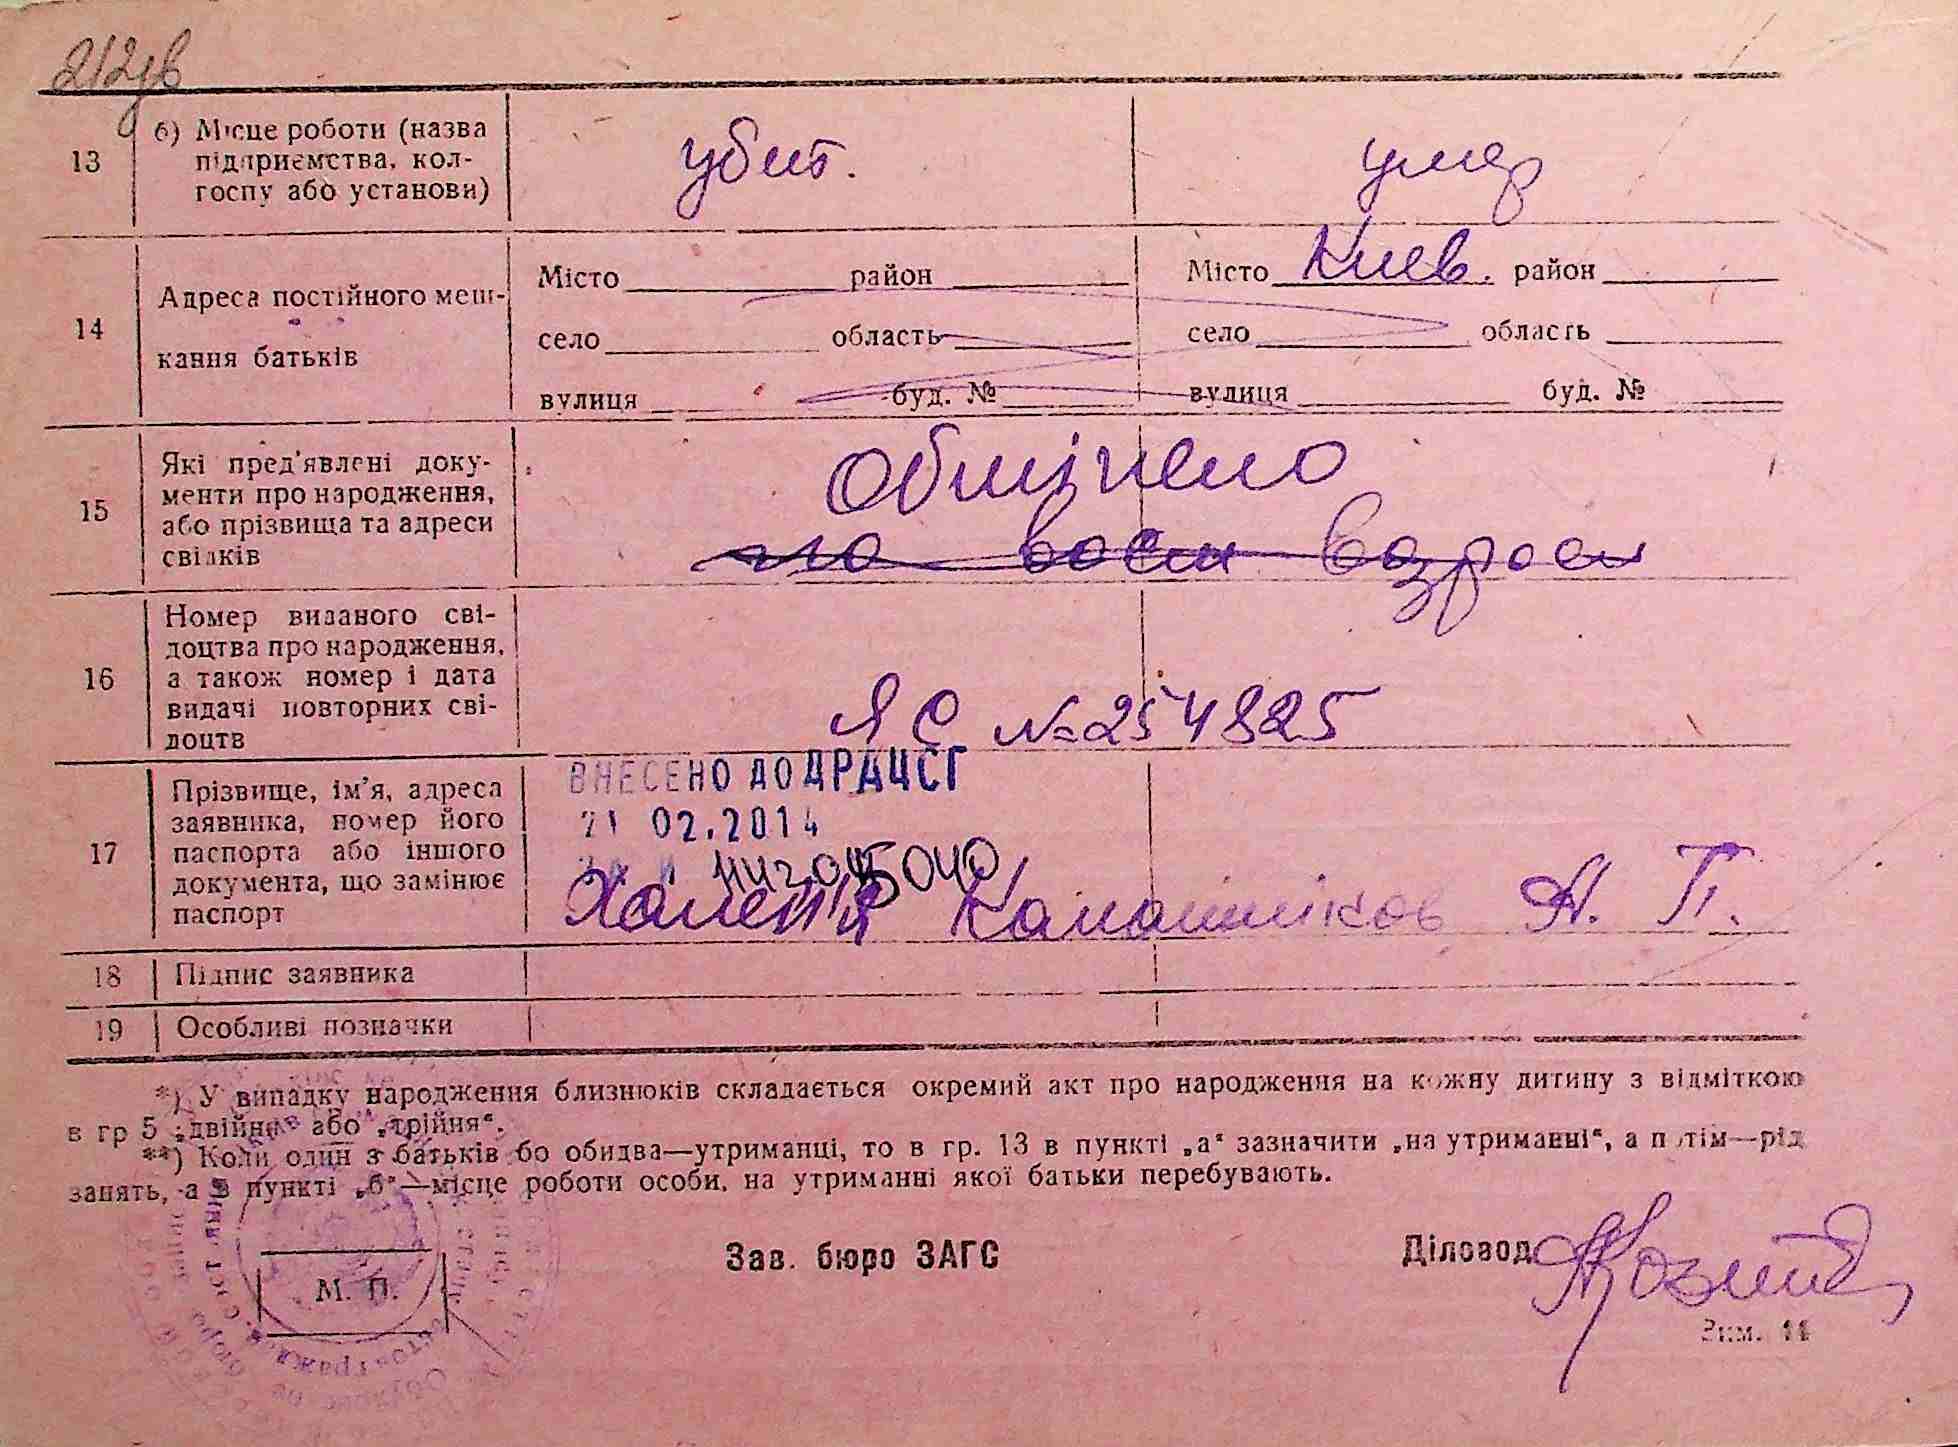 13 б) Місце роботи (назва
підприємства, кол-
госпу або установи)
убит. умер
14 Адреса постійного меш-
кання батьків
Місто район Місто Киев. район
село область село область
вулиця буд. № вулиця буд. №
15 Які пред'явлені доку-
менти про народження,
або прізвища та адреси
свідків
Обмінено
16 Номер виданого сві-
доцтва про народження,
а також номер і дата
видачі повторних сві-
доцтв
ЯС № 254825
17 Прізвище, ім'я, адреса
заявника, номер його
паспорта або іншого
документа, що замінює
паспорт
ВНЕСЕНО ДО ДРАЦСГ
21 02.2014
А. П.
18 Підпис заявника
19 Особливі позначки
*) У випадку народження близнюків складається окремий акт про народження на кожну дитину з відміткою
в гр 5 „двійня“ або „трійня“.
**) Коли один з батьків бо обидва—утриманці, то в гр. 13 в пункті „а“ зазначити „на утриманні“, а потім—рід
занять, а в пункті „б“—місце роботи особи, на утриманні якої батьки перебувають.
М. П.
Зав. бюро ЗАГС
Діловод
Зим. 11